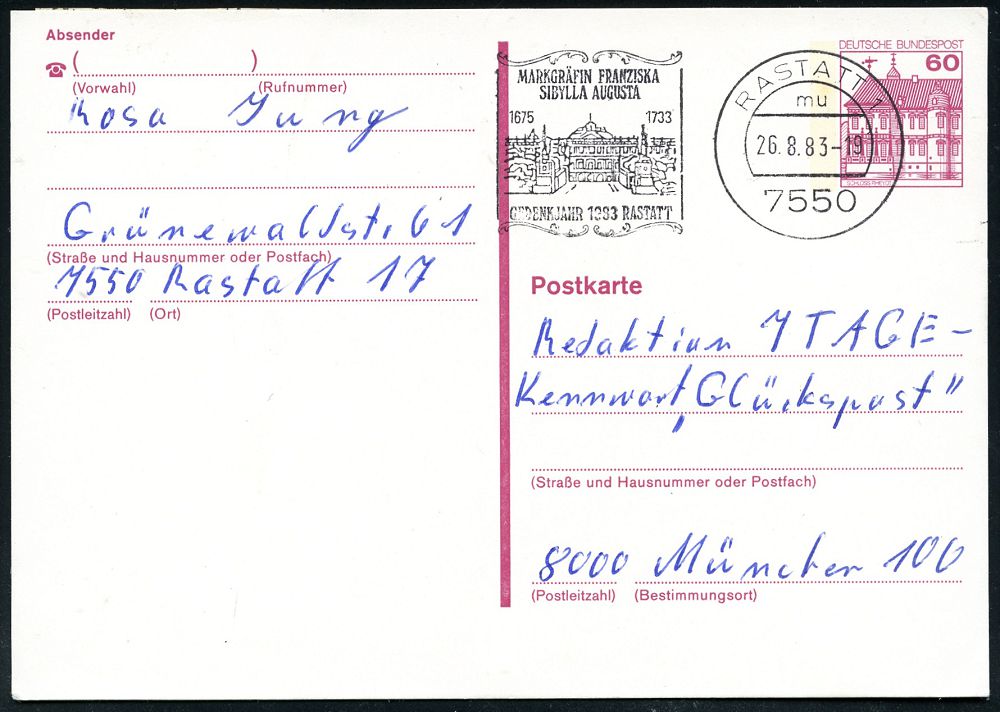 Absender
( )
(Vorwahl) (Rufnummer)
Rosa Jung
Grünewaldstr. 61
(Straße und Hausnummer oder Postfach)
7550 Rastatt 17
(Postleitzahl) (Ort)
MARKGRÄFIN FRANZISKA
SIBYLLA AUGUSTA
1675 1733
GEDENKJAHR 1983 RASTATT
RASTATT 1
mu
26.8.83-19
7550
DEUTSCHE BUNDESPOST
60
SCHLOSS RHEYDT
Postkarte
Redaktion 7 TAGE-
Kennwort „Glückspost"
(Straße und Hausnummer oder Postfach)
8000 München 100
(Postleitzahl) (Bestimmungsort)